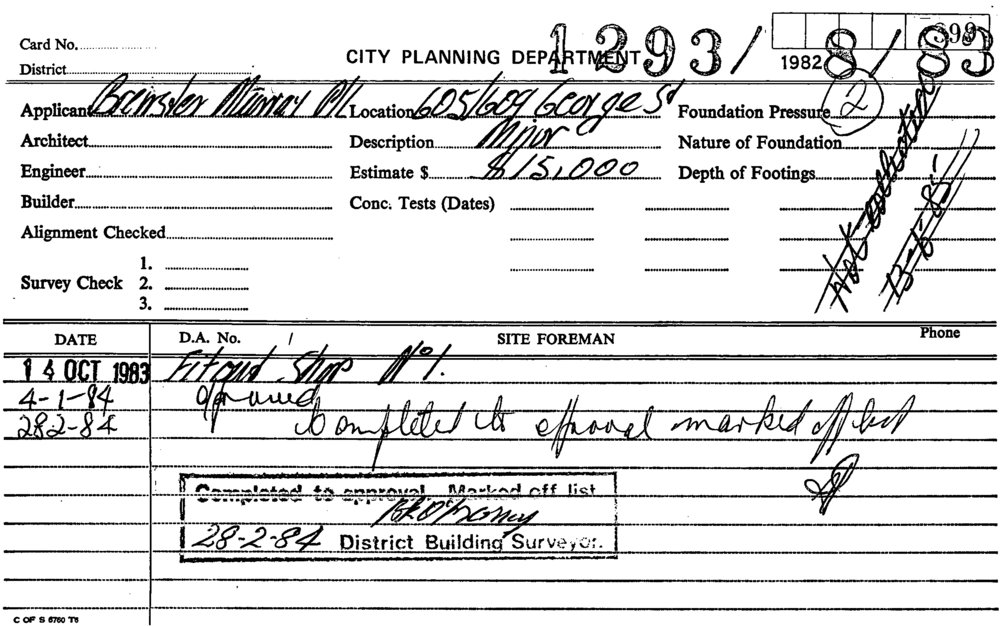 Card No.
CITY PLANNING DEPARTMENT
1293/83
1982
District
Applicant Brewster Murray P/L Location 605/609 George St Foundation Pressure 2
Architect Description Mjor Nature of Foundation
Engineer Estimate $ $15,000 Depth of Footings
Builder Conc. Tests (Dates)
Alignment Checked
1.
Survey Check 2.
3.
DATE D.A. No. SITE FOREMAN Phone
14 OCT 1983 Fitout Shop No 1.
4-1-84 approved
28-2-84 Completed to approval marked off list
Completed to approval. Marked off list
28-2-84 District Building Surveyor.
C OF S 6760 T6